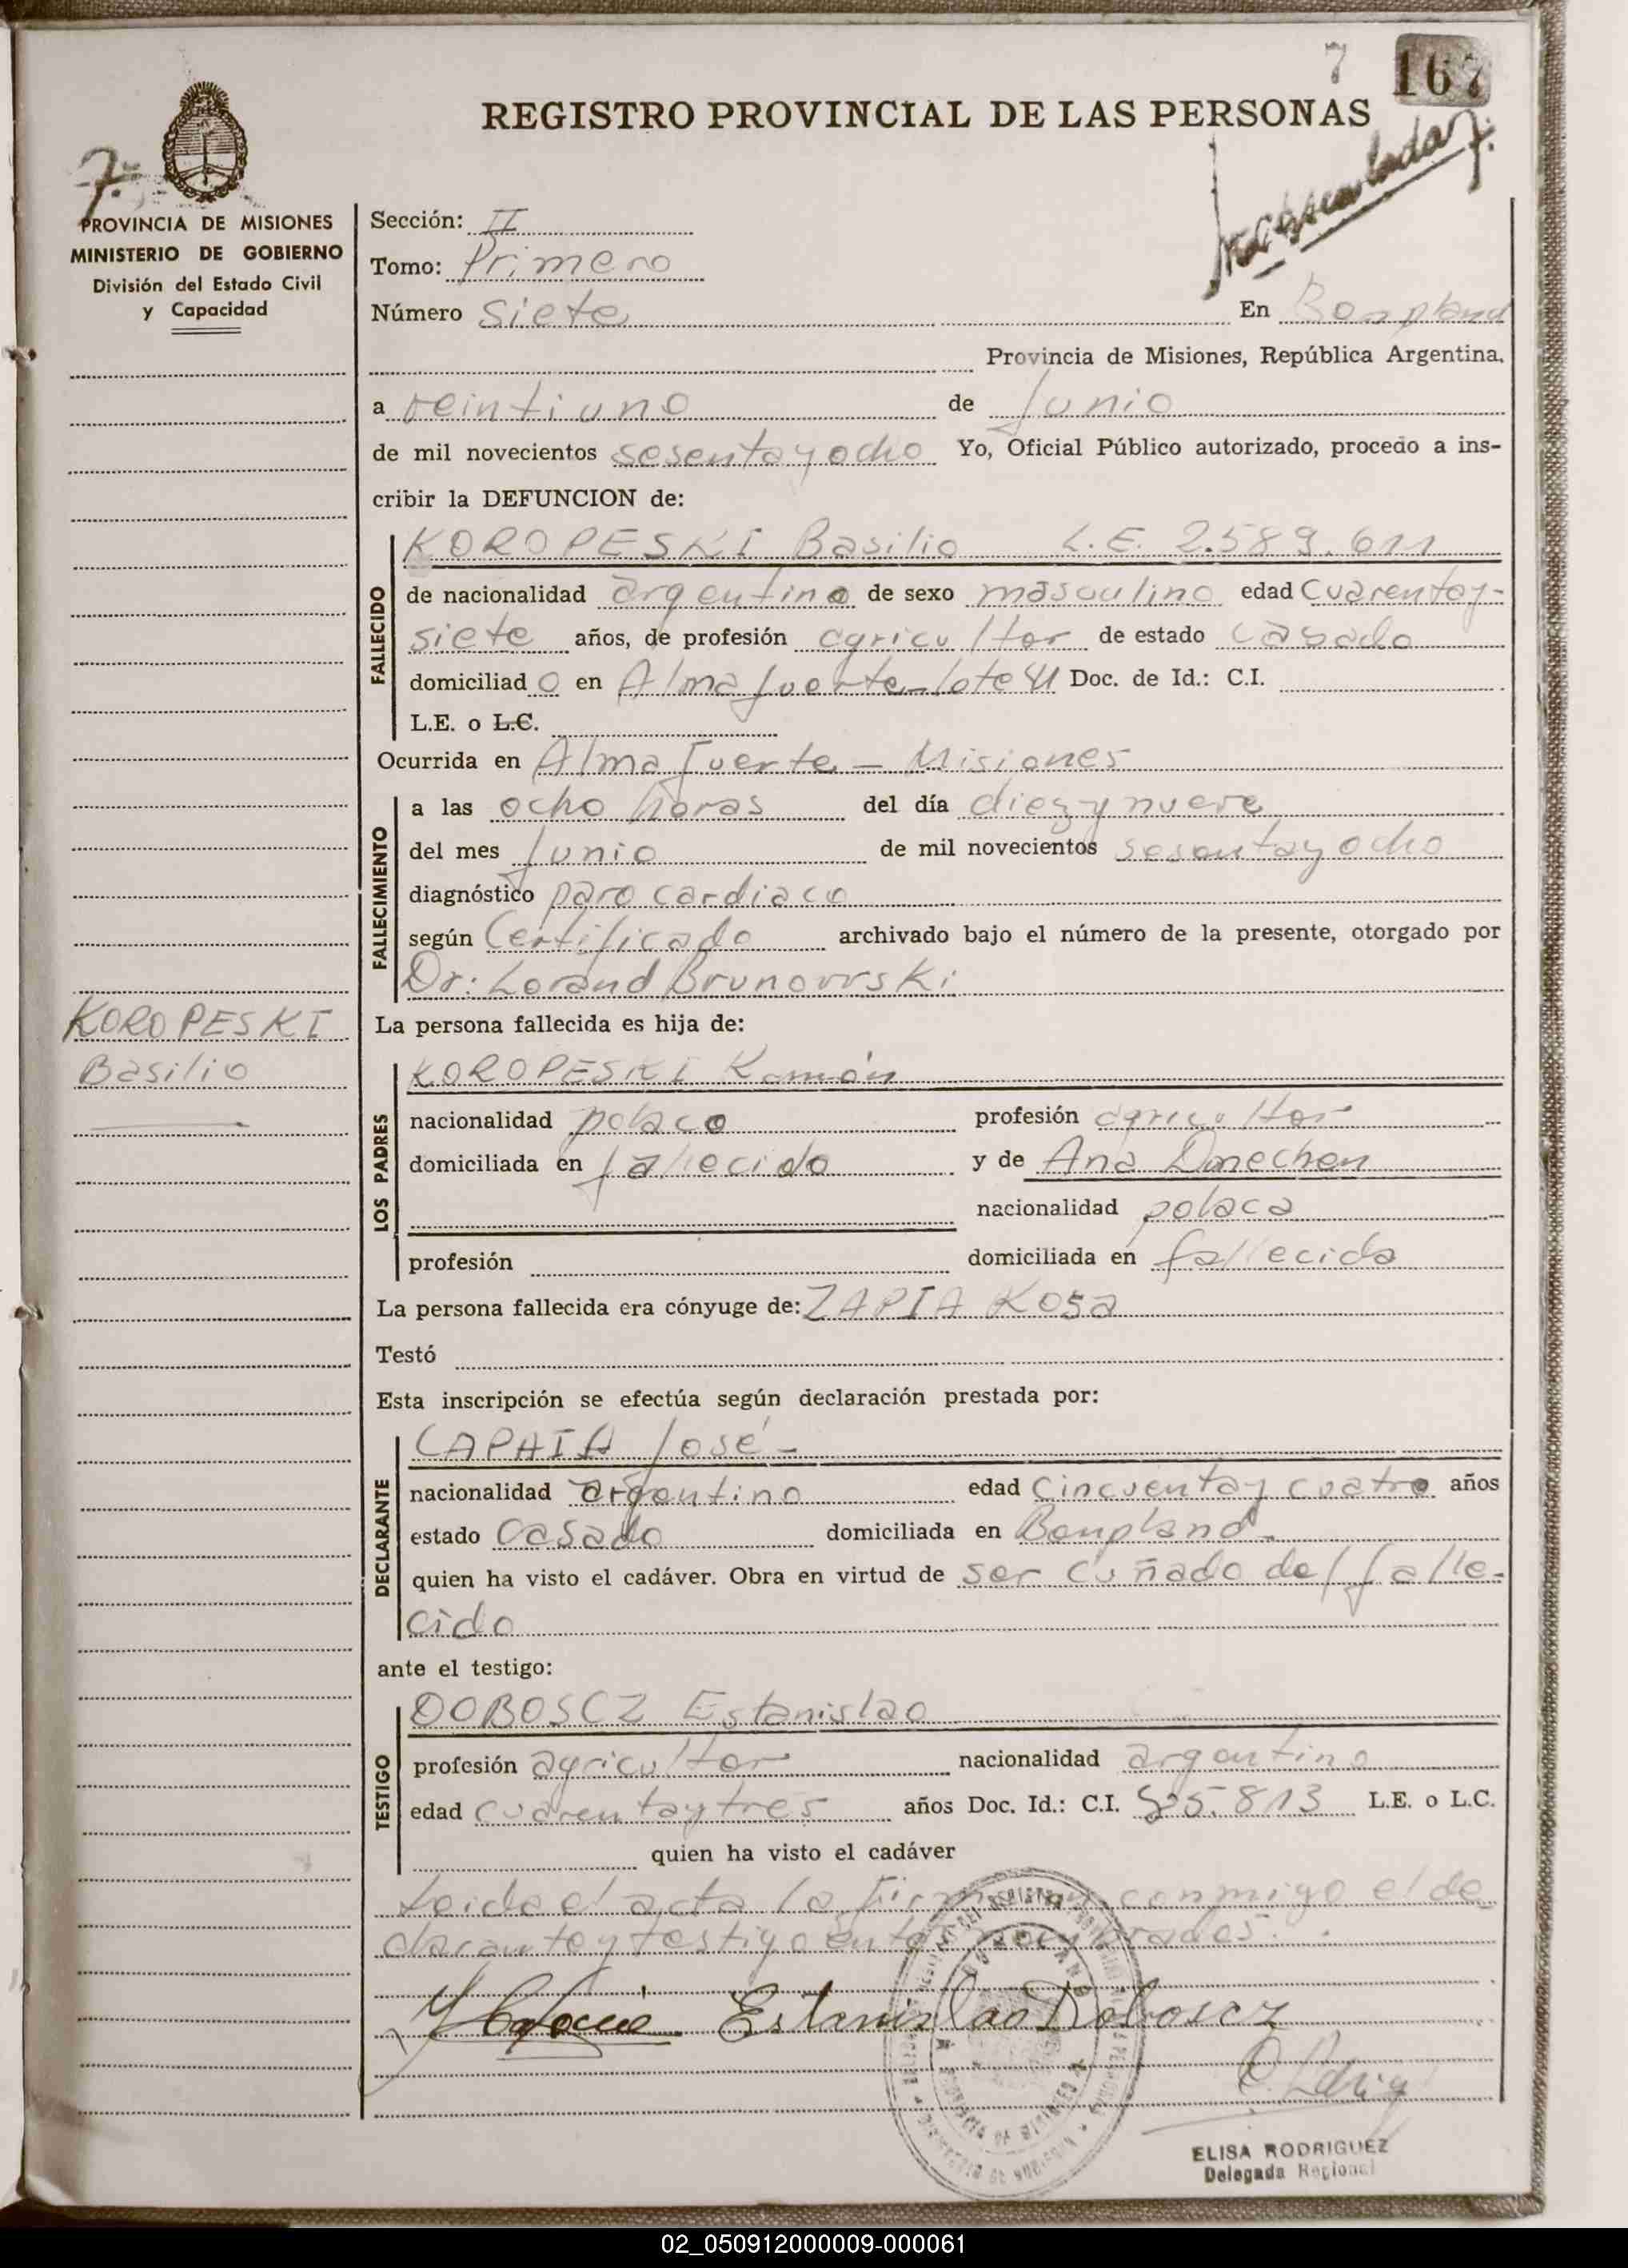 7 167
REGISTRO PROVINCIAL DE LAS PERSONAS
7.
PROVINCIA DE MISIONES
MINISTERIO DE GOBIERNO
División del Estado Civil
y Capacidad
Sección: II
Tomo: Primero
Número siete En Bonpland
Provincia de Misiones, República Argentina,
a veintiuno de Junio
de mil novecientos sesentayocho Yo, Oficial Público autorizado, procedo a ins-
cribir la DEFUNCION de:
KOROPESKI Basilio L.E. 2.589.611
FALLECIDO
de nacionalidad argentino de sexo masculino edad cuarentay-
siete años, de profesión agricultor de estado casado
domiciliado en Alma fuerte-lote 41 Doc. de Id.: C.I.
L.E. o L.C.
Ocurrida en Alma fuerte - Misiones
FALLECIMIENTO
a las ocho horas del día diez y nueve
del mes Junio de mil novecientos sesentayocho
diagnóstico paro cardiaco
según Certificado archivado bajo el número de la presente, otorgado por
Dr: Lorand Brunovrski
KOROPESKI
Basilio
La persona fallecida es hija de:
LOS PADRES
KOROPESKI Ramón
nacionalidad polaco profesión agricultor
domiciliada en fallecido y de Ana Dmechen
nacionalidad polaca
profesión domiciliada en fallecida
La persona fallecida era cónyuge de: ZAPIA Rosa
Testó
Esta inscripción se efectúa según declaración prestada por:
DECLARANTE
CAPAIA José-
nacionalidad argentino edad Cincuentay cuatro años
estado casado domiciliada en Bonpland-
quien ha visto el cadáver. Obra en virtud de ser cuñado del falle-
cido
ante el testigo:
TESTIGO
DOBOSCZ Estanislao
profesión agricultor nacionalidad argentino
edad cuarentaytres años Doc. Id.: C.I. 85.813 L.E. o L.C.
quien ha visto el cadáver
Leida el acta la firman conmigo el de
clarante y testigo entes nombrados.
Estanislao Doboscz
ELISA RODRIGUEZ
Delegada Regional
02_050912000009-000061